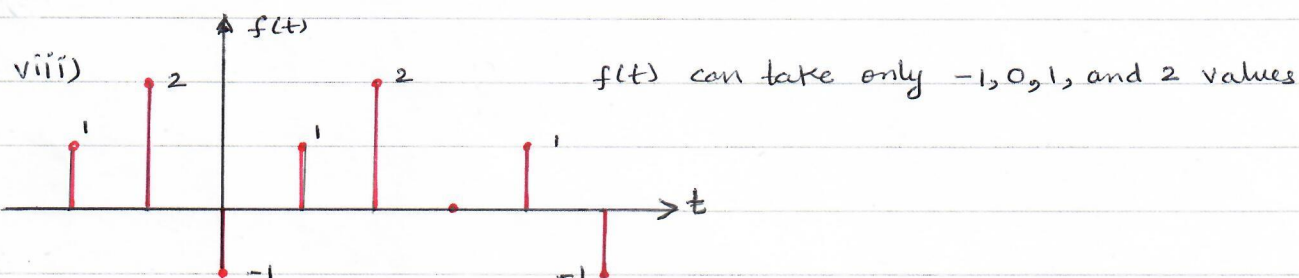 f(t)
viii)
2
2
f(t) can take only -1,0,1, and 2 values
1
1
1
t
-1
-1